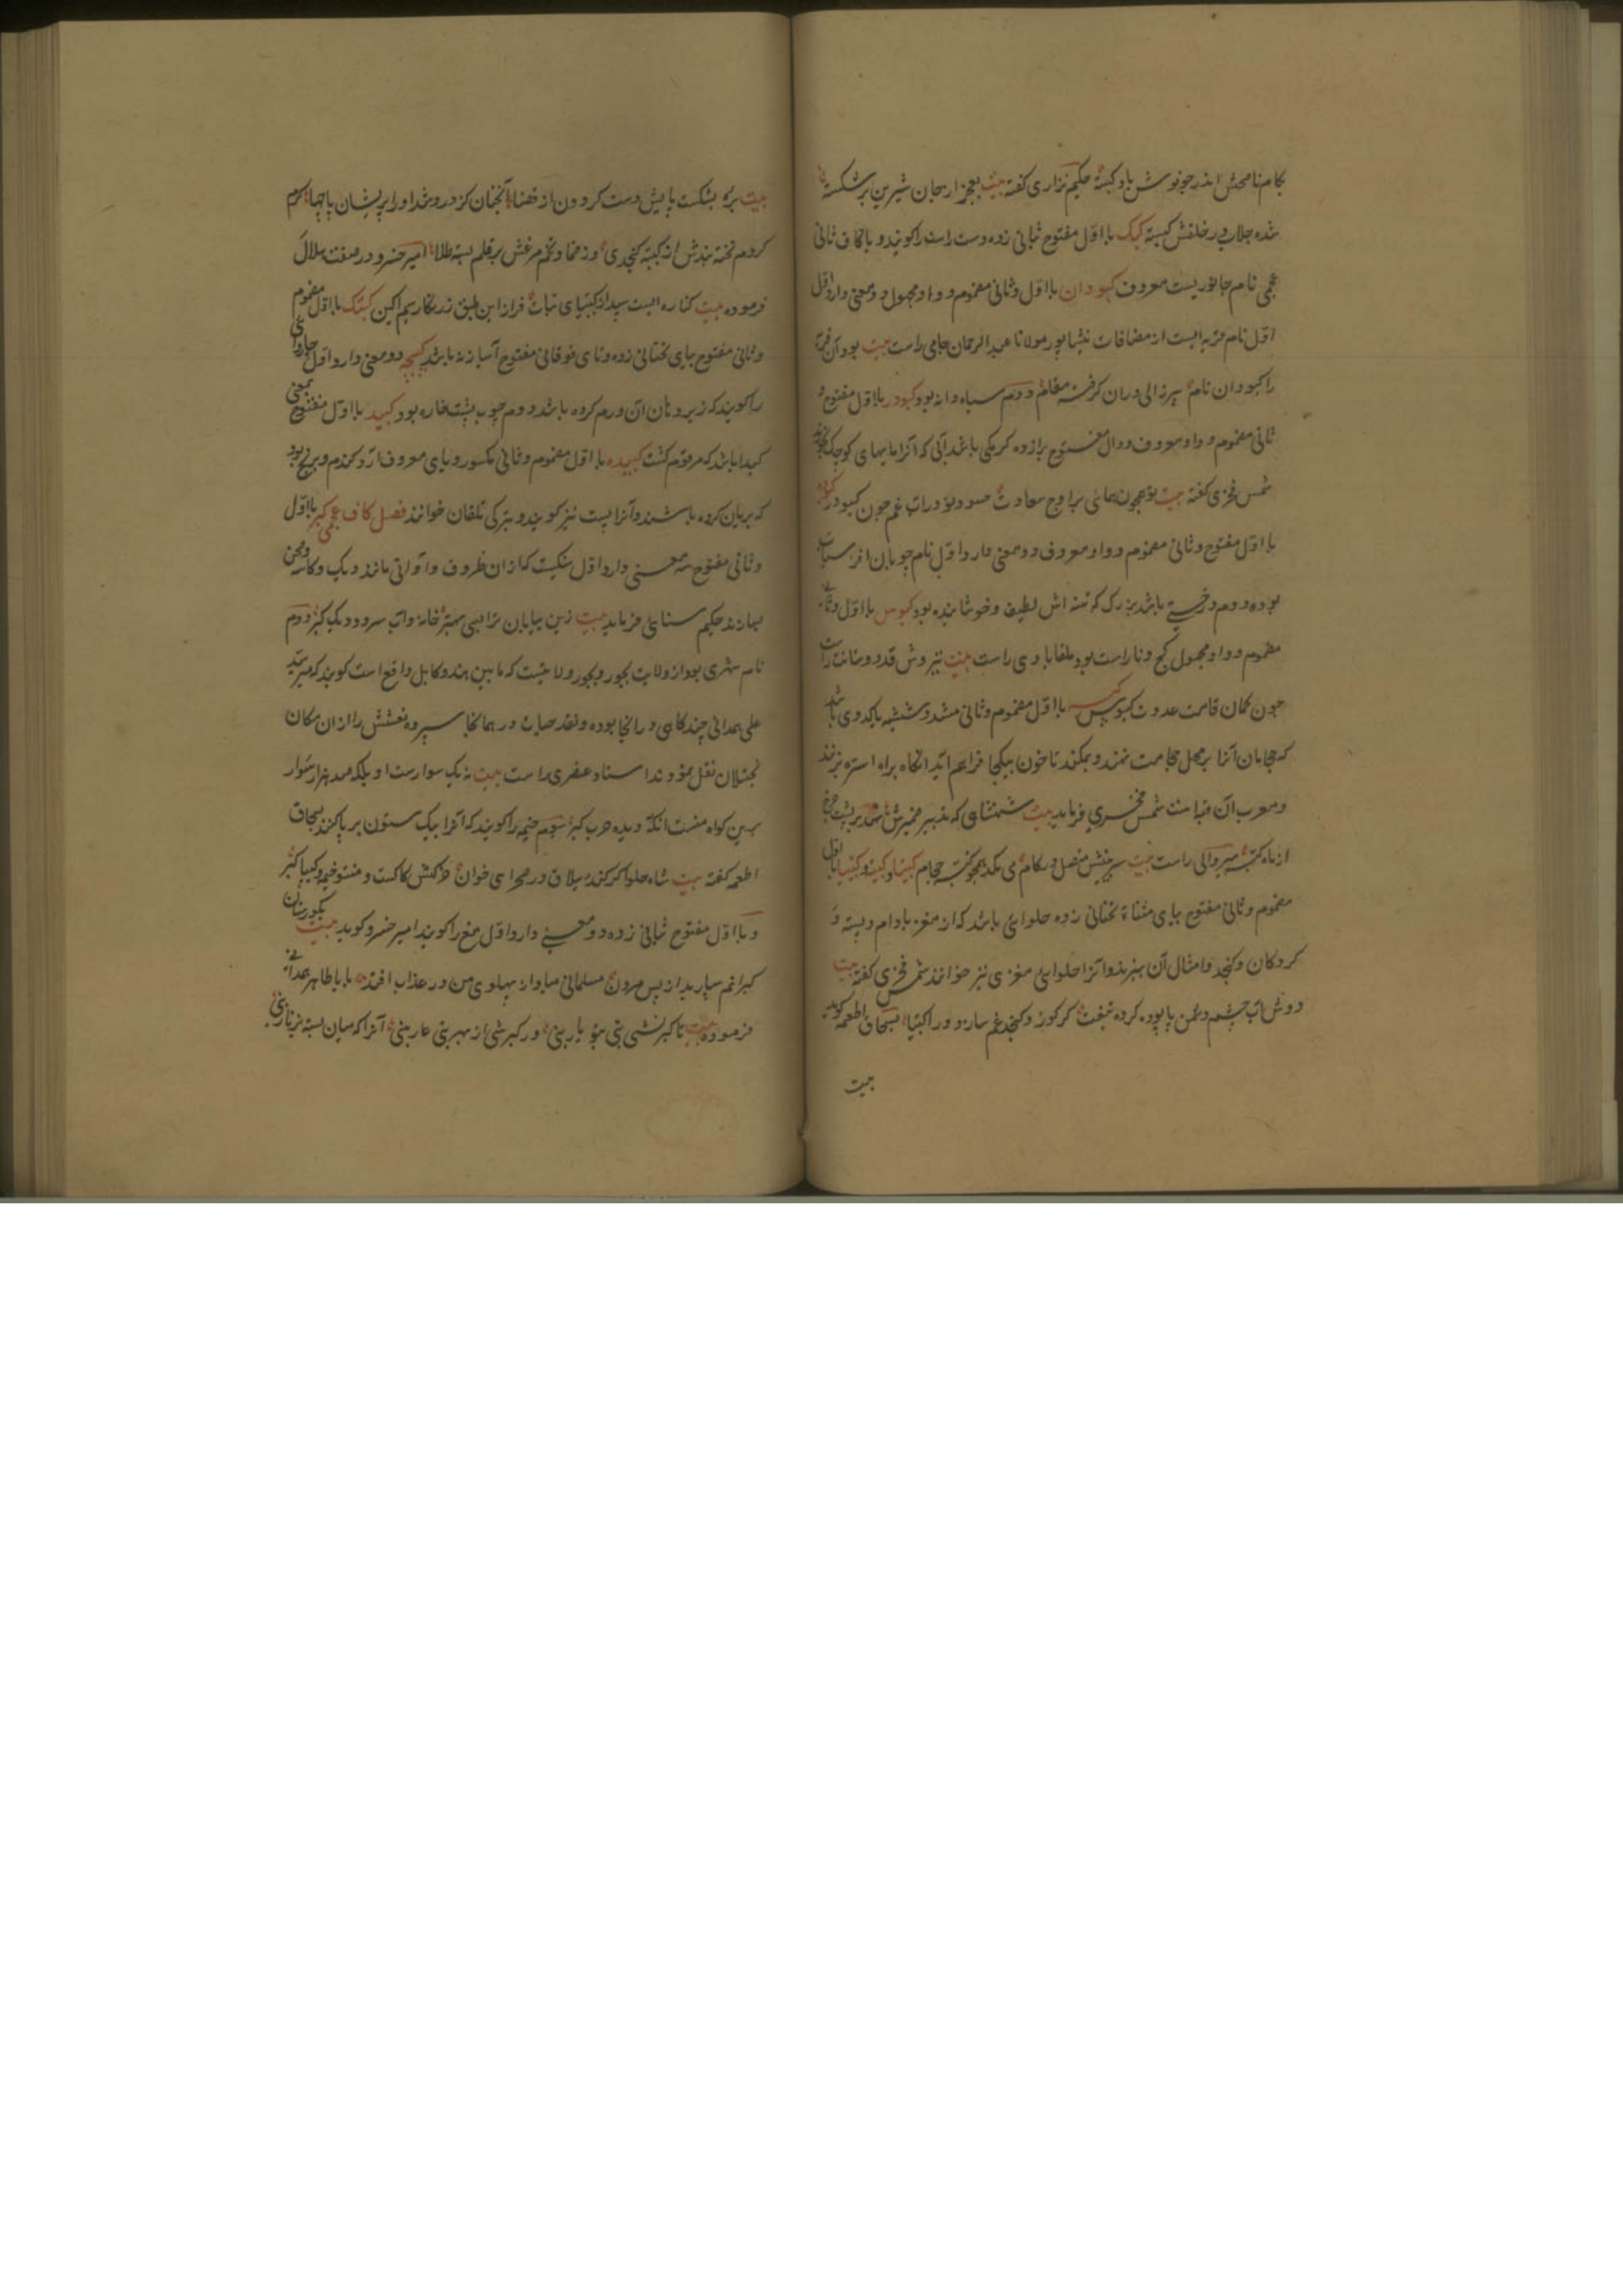 بکام ناصحش اندر چو نوش باد کبسته حکیم نزاری کفته بیت بعجز از جان شیرین بر شکسته
شده جلاب در حلقش کبسته کبک با اول مفتوح بثانی زده دست راست را کویند و با کاف ثانی
عجمی نام جانوریست معروف کبودان با اول و ثانی مضموم و واو مجهول دو معنی دارد اول
اول نام قریه ایست از مضافات نیشاپور مولانا عبد الرحمان جامی راست بیت بود آن قریه
را کبودان نام پیر زالی دران کرفته مقام دوم سیاه دانه بود کبودر با اول مفتوح و
ثانی مضموم و واو معروف و دال مفتوح برا زده کرمکی باشد آبی که آنرا ماهیهای کوچک بخورند
شمس فخری کفته بیت تو همچون همائی بر اوج سعادت حسود تو در آب غم چون کبودر کبوده
با اول مفتوح و ثانی مضموم و واو معروف دو معنی دارد اول نام چوپان افراسیاب
بوده دوم درختی باشد بزرک که تنه اش لطیف و خوشاینده بود کبوس با اول و ثانی
مضموم و واو مجهول کج و ناراست بود ملقابادی راست بیت تیر وش قد دوستانت راست
چون کمان قامت عدوت کبوس کبه با اول مضموم و ثانی مشدد شیشه یا کدوی باشد
که حجامان آنرا بر محل حجامت نهند و بمکند تا خون بیکجا فراهم آید آنکاه براه استره بزنند
و معرب آن قبه است شمس فخری فرماید بیت شهنشاهی که تدبیر ضمیرش نهد بر پشت چرخ
از ماه کبه میر والهی راست بیت سر نیشش متصل در کام می مکد همچو کبه حجام کبیتا و کبیته و کبیتیا با اول
مضموم و ثانی مفتوح بیای مثناة تحتانی زده حلوائی باشد که از مغز بادام و پسته و
کردکان و کنجد و امثال آن بپزند و آنرا حلوای مغزی نیز خوانند شمس فخری کفته بیت
دوش آب چشمه دشمن پالوده کرده نیفت کر کوز و کنجد غم سازد ورا کبیتا بسحاق اطعمه کوید
بیت
بیت بره بشکست پایش دست کردون از قضا آنچنان کز درد شد او را پریشان پاچها کرم
کردم تخته بندش از کبیته کنجدی وز خما و تخم مرغش بر قلم بسته طلا امیر خسرو در صفت هلال
فرموده بیت کناره ایست سپید از کبیتیای نبات فراز این طبق زرنکار سیم آکین کبیتک با اول مضموم
و ثانی مفتوح بیای تحتانی زده و تای فوقانی مفتوح آسیازنه باشد کبیچه دو معنی دارد اول چاروای
را کویند که زیر دهان آن ورم کرده باشد دوم چوب پشت خاره بود کبید با اول مفتوح بمعنی
کبدا باشد که مرقوم کشت کبیده با اول مضموم و ثانی مکسور و یای معروف آرد کندم و برنج بود
که بریان کرده باشند و آنرا پست نیز کویند و بترکی تلقان خوانند فصل کاف عجمی کبر با اول
و ثانی مفتوح سه معنی دارد اول سنکیست که از ان ظروف و آوانی مانند دیک و کاسه و صحن
سازند حکیم سنائی فرماید بیت زین بیابان ترا بسی بهتر خانه و آب سرد و دیک کبر دوم
نام شهری بود از ولایت بجور و بجور ولایتیست که مابین هند و کابل واقع است کویند که میر سید
علی همدانی چندکاهی در آنجا بوده و نقد حیات در همانجا سپرده نعشش را از ان مکان
بختلان نقل نمودند استاد عنصری راست بیت نه یک سوار است او بلکه صد هزار سوار
برین کواه منست آنکه دیده حرب کبر سوم خیمه را کویند که آنرا بیک ستون بر پا کنند بسحاق
اطعمه کفته بیت شاه حلوا کر کند ییلاق در صحرای خوان
و با اول مفتوح بثانی زده دو معنی دارد اول مغ را کویند امیر خسرو کوید بیت بکورستان
کبرانم سپارید از پس مردن مسلمانی مبادا از پهلوی من در عذاب افتد بابا طاهر عدانی
فرموده بیت تا کبر نشی بتی بتو یار نبی ور کبر شی از بهر بتی عار نبی آنرا که میان بسته بزنار نبی